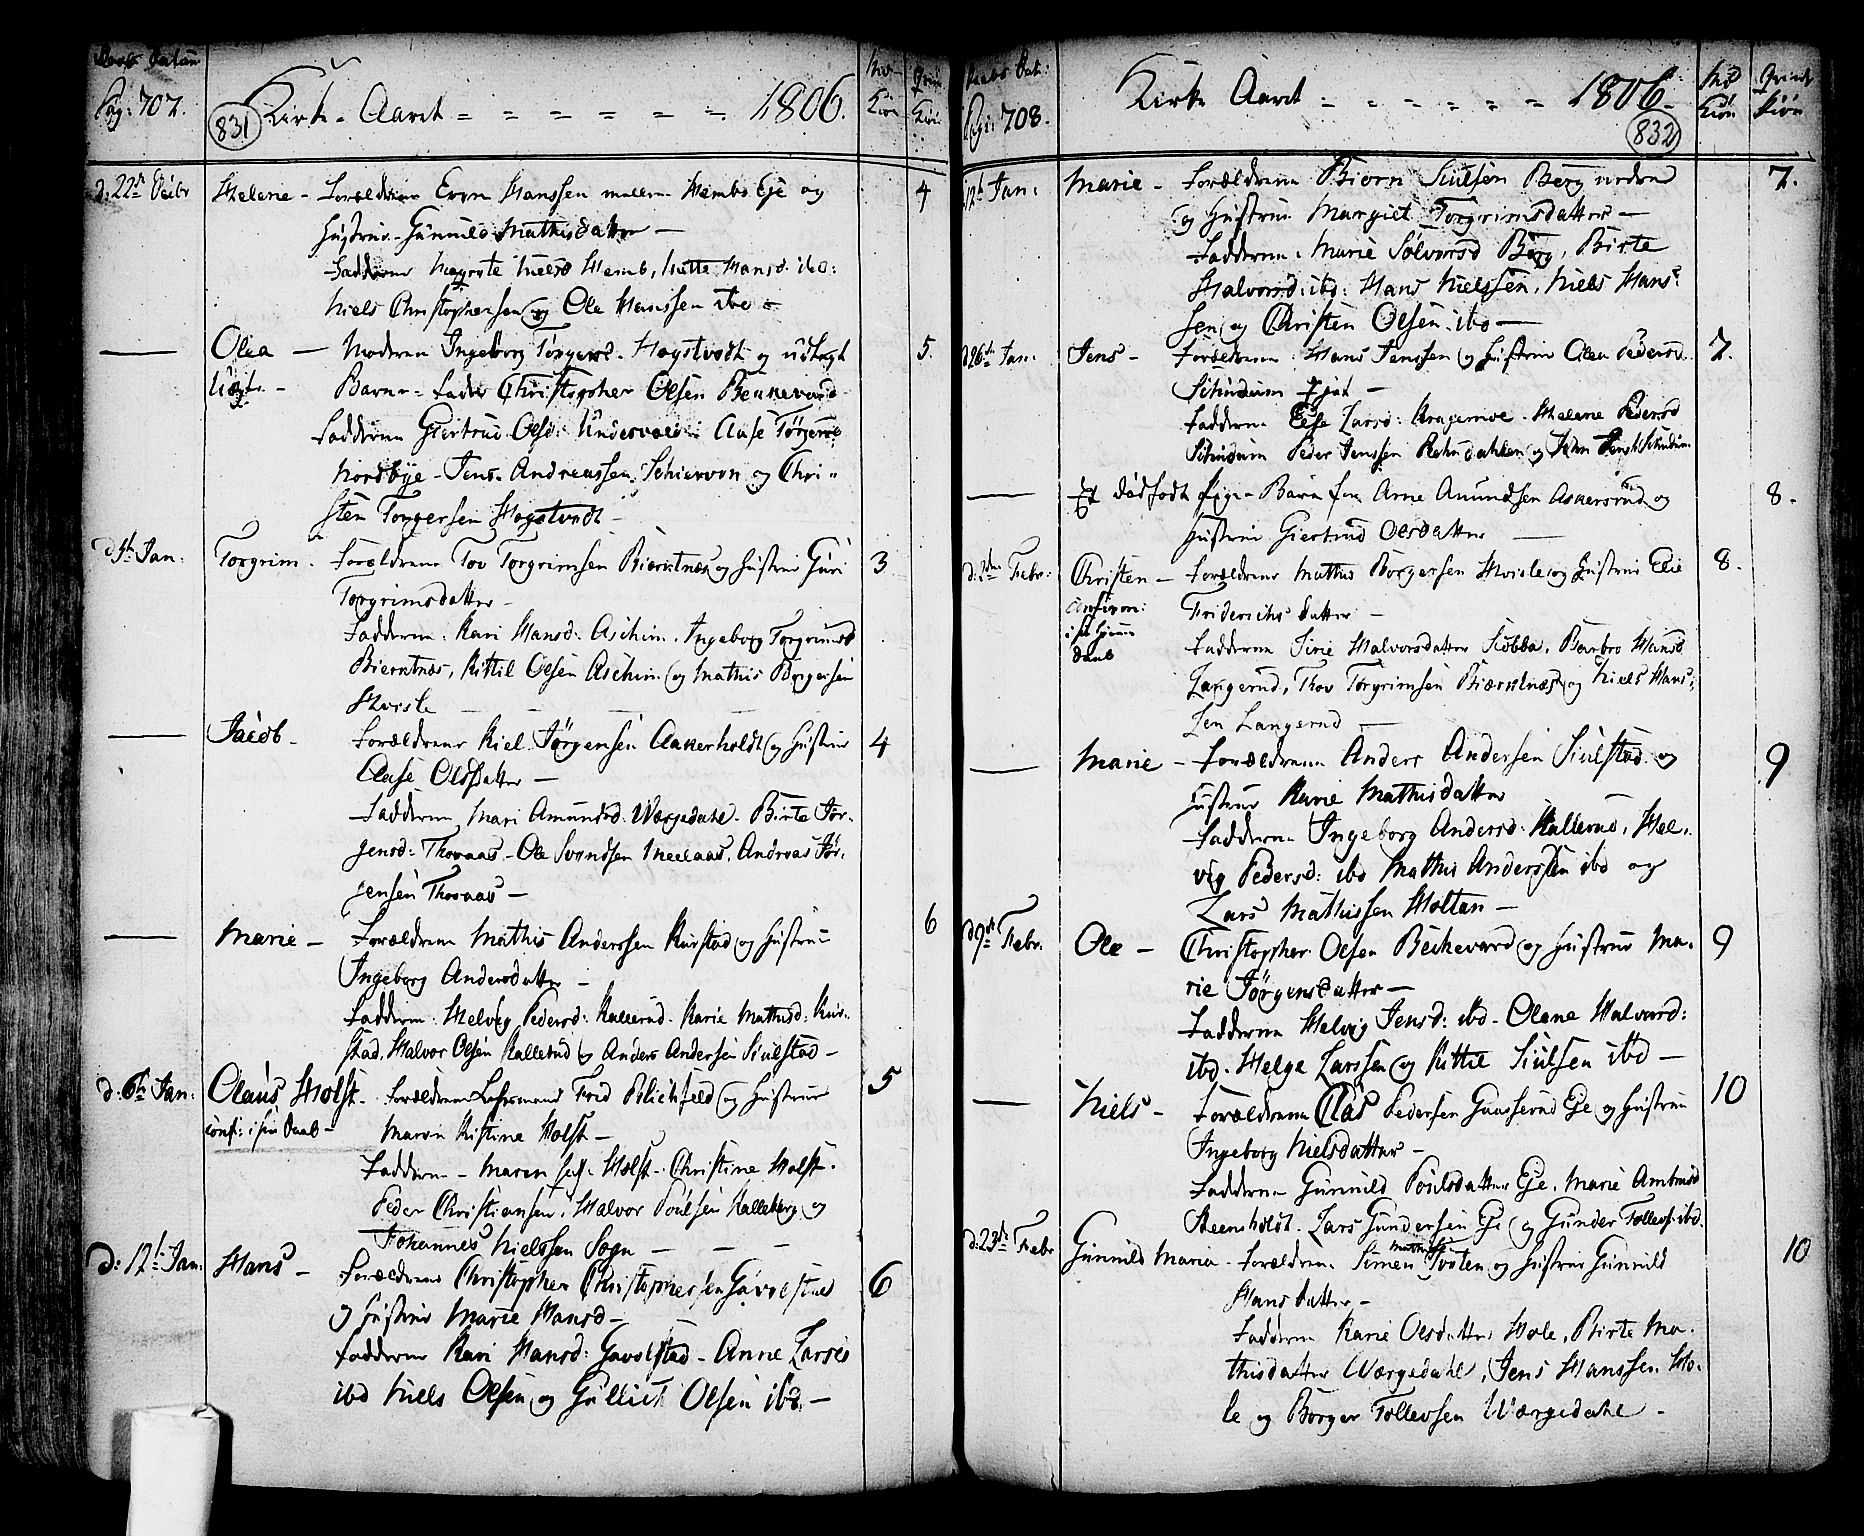 Pag: 707.
831
Kirke-Aaret = = = = = = 1806.
Kiön
d: 22de Decbr Helene - Forældrene Even Hanssen Hembs Eje og 4
Hustrue Gunnild Mathisdatter —
Fadderne Niels Hemb, Hans: ibd:
Niels Christophersen og Ole Hanssen ibd -
— Olea — Moderen Ingeborg Torgersd. Hogstvedt og udlagt 5.
Uægt. - Barne-Fader Christopher Olsen
Fadderne Giertrud Olsd: Aase
Nordbye - Jens Andreassen og Chri-
sten Torgersen Hogstvedt -
Jan: Torgrim. Forældrene Tov Torgrimsen Biærntnæs og Hustrue Guri 3
Torgrimsdatter -
Fadderne: Kari Hansd: Aschim. Ingeborg Torgrimsd
Bierntnæs, Kittil Olsen Aschim og Mathis Borgersen
Hvisle
— Jacob - Forældrene Kiel Jörgensen Aakerholdt og Hustrue 4
Aase Olsdatter —
Fadderne Mari Amundsd: Wærgedahl. Birte Jör-
gensd: Thoraas - Ole Svendsen Meelaas, Andreas Jör-
gensen Thoraas -
— Marie - Forældrene Mathis Anderssen Rustad og Hustrue 6
Ingeborg Andersdatter -
Fadderne. Helvig Pedersd: Kallerud. Karie Mathisd: Ru-
stad. Halvor Olsen Kallerud og Anders Andersen Siulstad -
d. 6te Jan: Claus Holst - Forældrene Frid Blichfeld og Hustrue 5
Conf: i sin Daab - Maren Kistine Holst -
Fadderne - Maren Holst - Christine Holst.
Peder Christiansen, Halvor Poulsen Kalleberg og
Johannes Nielssen Sogn — — —
d: 12te Jan: Hans - Forældrene Christopher Christophersen Gavelstad 6
og Hustrue Marie Hansd -
Fadderne Kari Hansd: Gavelstad - Anne Larsd
ibd Niels Olsen og Gullich Olsen ibd. -
Pag: 708.
Kirke Aaret = = = = = = 1806.
832
Kiön
12te Jan: Marie - Forældrene Biörn Siulsen Berg nordre 7.
og Hustrue Margit Torgrimsdatter —
Fadderne. Marie Solversd Berg, Birte
Halvorsd: ibd: Hans Nielssen, Niels Hans-
sen og Christen Olsen. ibd —
d 26de Jan: Jens - Forældrene Hans Jenssen og Hustrue Olea Pedersd. 7.
Fadderne. Else Larsd: Helene Pedersd
Peder Jenssen og
— Et dödfödt Pige-Barn for Arne Amundsen Askersrud og 8.
Hustrue Giertrud Olsdatter —
d: 2den Febr: Christen - Forældrene Mathis Borgersen Hvisle og Hustrue Elie 8.
Confirm: Friderichs datter -
i sin Hjemme Fadderne Sirie Halvorsdatter Stobba. Barbro Hansd
daab
Langerud, Thov Torgrimsen Biærntnæs og Niels Hans-
sen Langerud —
— Marie - Forældrene Anders Andersen Siulstad og 9
Hustrue Karie Mathisdatter
Fadderne Ingeborg Andersd: Kallerud, Hel-
vig Pedersd: ibd Mathis Anderssen ibd og
Lars Mathissen Holtan -
d 9de Febr. Ole - Christopher Olsen Beckevard og Hustrue Ma- 9
rie Jörgensdatter —
Fadderne Helvig Jensd: ibd - Olene Halvord:
ibd. Helge Larssen og Kittil Siulsen ibd -
— Niels - Forældrene Clas Pedersen Gaasserud Eje og Hustrue 10
Ingeborg Nielsdatter -
Fadderne Gunnild Poulsdatter Eje, Marie
Steensholdt. Lars Gundersen Eje og Gunder Tollevs: ibd.
d: 23de Febr Gunnild Maria - Forældrene Simen Mathis: Tvisten og Hustrue Gunnild 10
Hans datter -
Fadderne Karie Olsdatter Hole, Birte Ma-
thisdatter Wærgedahl, Jens Hanssen Ho-
le og Borger Tollevsen Wærgedahl -